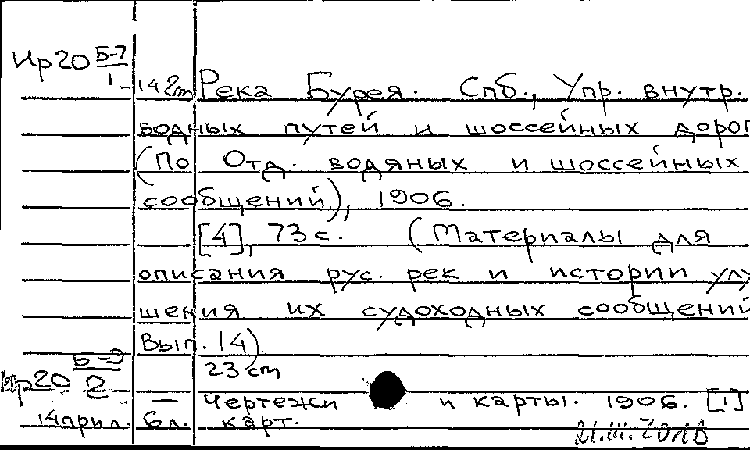 Ир20 Б-7/1-142т Река Бурея. Спб., Упр. внутр.
водных путей и шоссейных дорог
(По Отд. водяных и шоссейных
сообщений), 1906.
[4], 73 с. (Материалы для
описания рус. рек и истории улу
шения их судоходных сообщений
Вып. 14)
23 cm
Ир20 Б-9/2 — Чертежи и карты. 1906. [1]
14 прил. 6 л. карт.